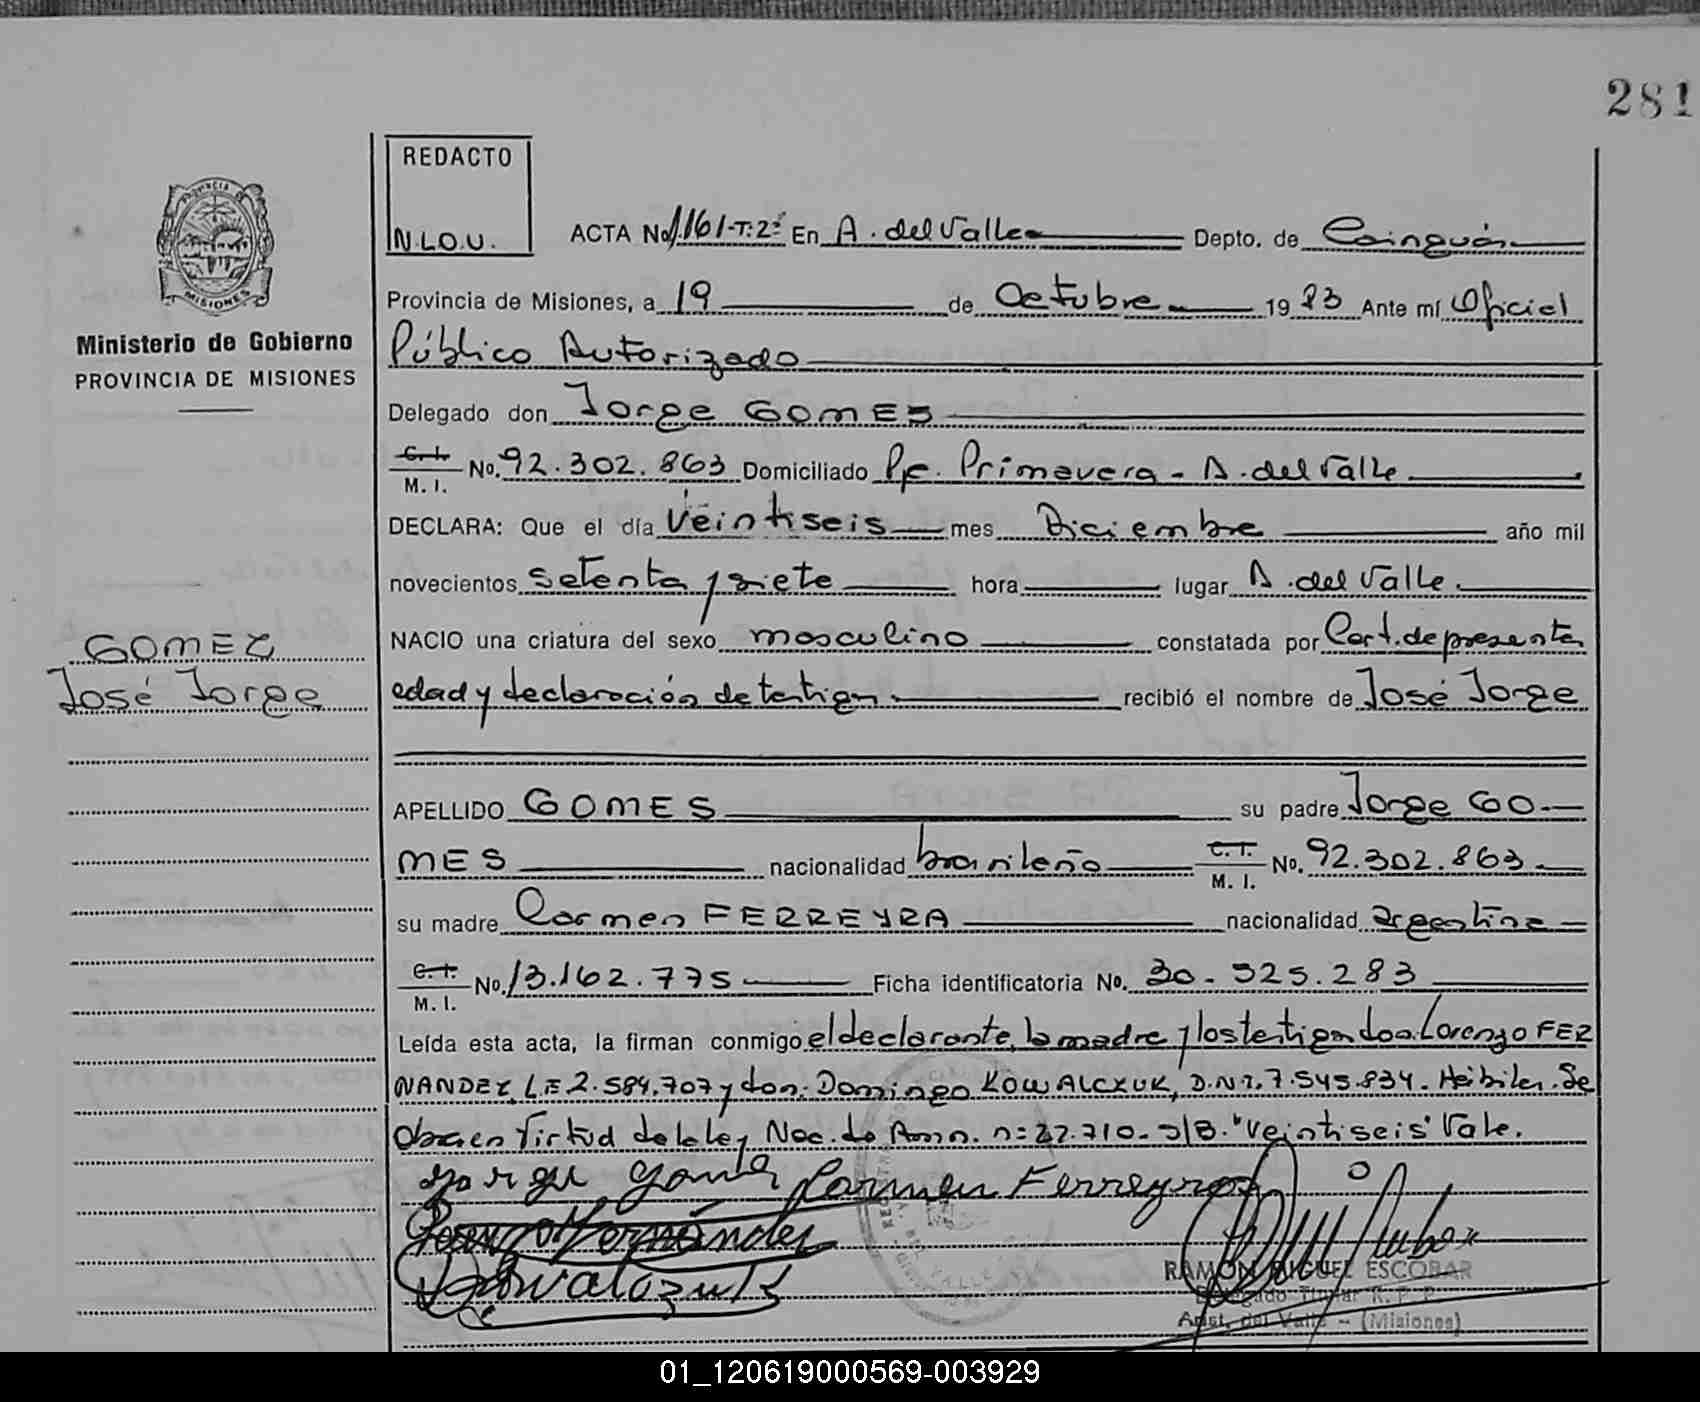 281
REDACTO
N.L.O.U.
ACTA No. 1.161-T:2º En A. del Valle Depto. de Cainguás
PROVINCIA DE MISIONES
Provincia de Misiones, a 19 de Octubre 1983 Ante mí Oficial
Ministerio de Gobierno
PROVINCIA DE MISIONES
Público Autorizado
Delegado don Jorge GOMES
C.I. M.I. No. 92.302.863 Domiciliado Pje. Primavera - A. del Valle
DECLARA: Que el día Veintiseis mes Diciembre año mil
novecientos setenta y siete hora lugar A. del Valle.
GOMEZ
José Jorge
NACIO una criatura del sexo masculino constatada por Cert. de presenta
edad y declaración de testigos. recibió el nombre de José Jorge
APELLIDO GOMES su padre Jorge GO-
MES nacionalidad brasileño C.I. M.I. No. 92.302.863
su madre Carmen FERREYRA nacionalidad argentina
C.I. M.I. No. 13.162.775 Ficha identificatoria No. 30.525.283
Leída esta acta, la firman conmigo el declarante, la madre y los testigos don: Lorenzo FER
NANDEZ, L.E 2.584.707 y don: Domingo KOWALCZUK, D.N.I. 7.545.834. Hábiles. Se
labra en Virtud de la ley Nac. de Amn. nº 22.710. S/B. "veintiseis" Vale.
Carmen Ferreyra
RAMON MIGUEL ESCOBAR
Delegado Titular R. P. P.
Arist. del Valle - (Misiones)
01_120619000569-003929